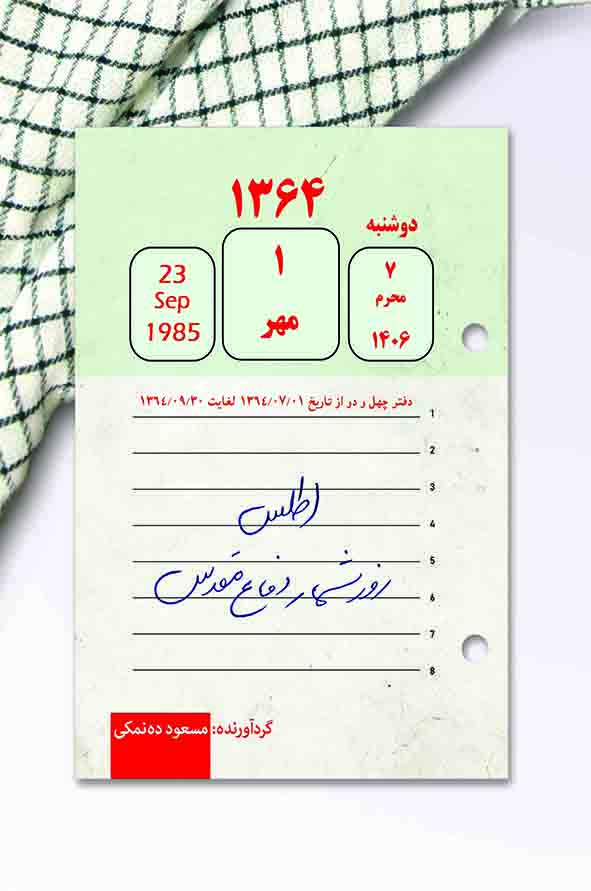 ۱۳۶۴
دوشنبه
۷
محرم
۱۴۰۶
۱
مهر
23
Sep
1985
دفتر چهل و در از تاریخ ۱۳٦٤/۰۷/۰۱ لغایت ۱۳٦٤/۰۹/۳۰
1
2
3
اطلس
4
5
روزشمار دفاع مقدس
6
7
8
گردآورنده: مسعود ده‌نمکی